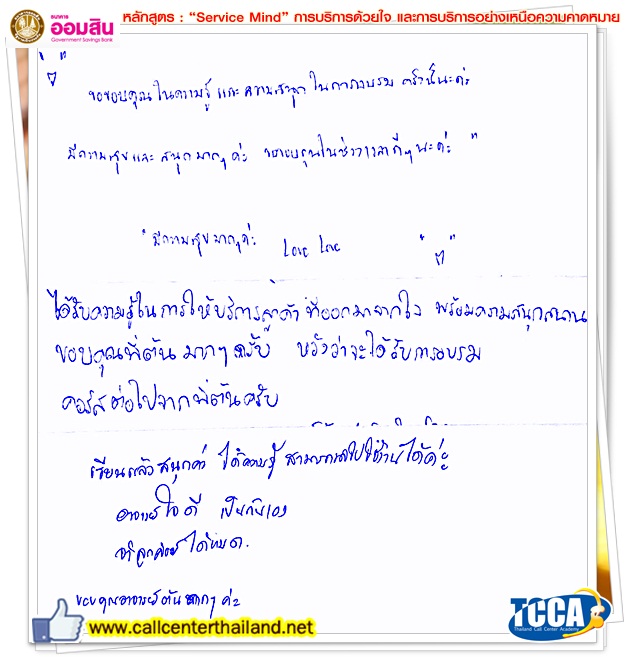 ธนาคาร
ออมสิน
Government Savings Bank
หลักสูตร : “Service Mind” การบริการด้วยใจ และการบริการอย่างเหนือความคาดหมาย
ขอขอบคุณในความรู้ และความสนุก ในการอบรม ครั้งนี้นะค่ะ
มีความสุขและ สนุกมากๆ ค่ะ ขอขอบคุณในช่วงเวลาดีๆ นะค่ะ "
" มีความสุขมากๆค่ะ Love Love
ได้รับความรู้ในการให้บริการลูกค้า ที่ออกมาจากใจ พร้อมความสนุกสนาน
ขอบคุณพี่ต้นมากๆครับ หวังว่าจะได้รับการอบรม
คอร์สต่อไปจากพี่ต้นครับ
เรียนแล้วสนุกค่า ได้ความรู้ ได้ค่ะ
อาจารย์ใจดี เป็นกันเอง
ได้หมด.
ขอบคุณอาจารย์ต้นมากๆ ค่ะ
www.callcenterthailand.net
TCCA
Thailand Call Center Academy